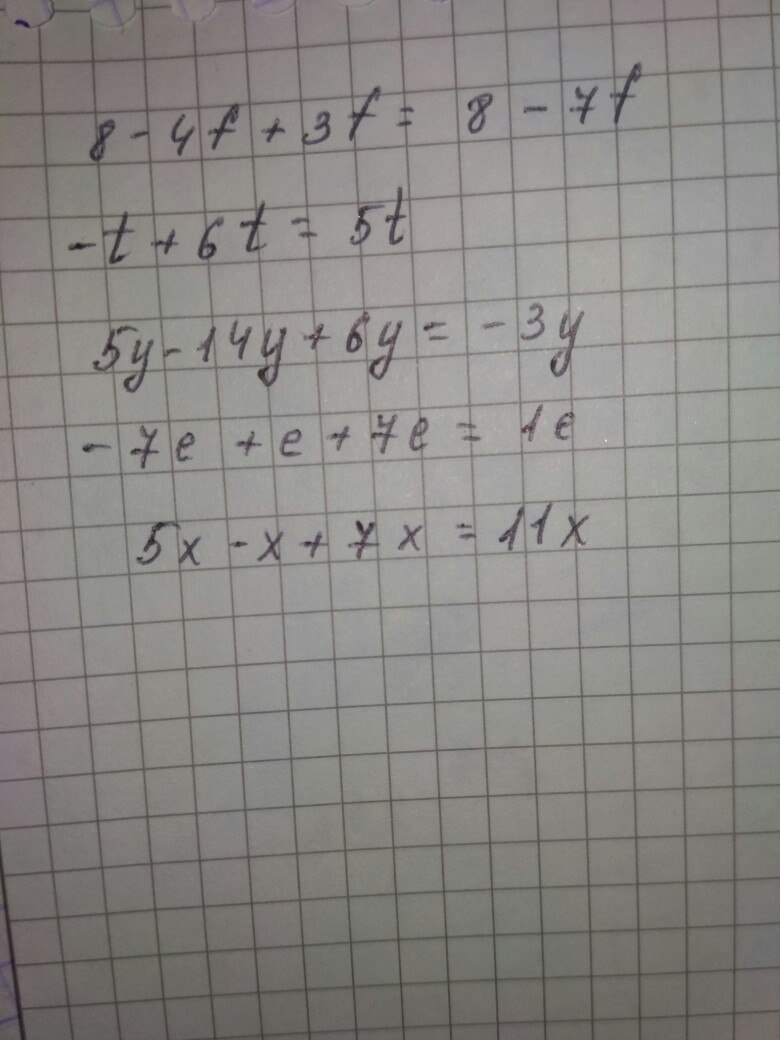 8 - 4f + 3f = 8 - 7f
-t + 6t = 5t
5y - 14y + 6y = -3y
-7e + e + 7e = 1e
5x - x + 7x = 11x